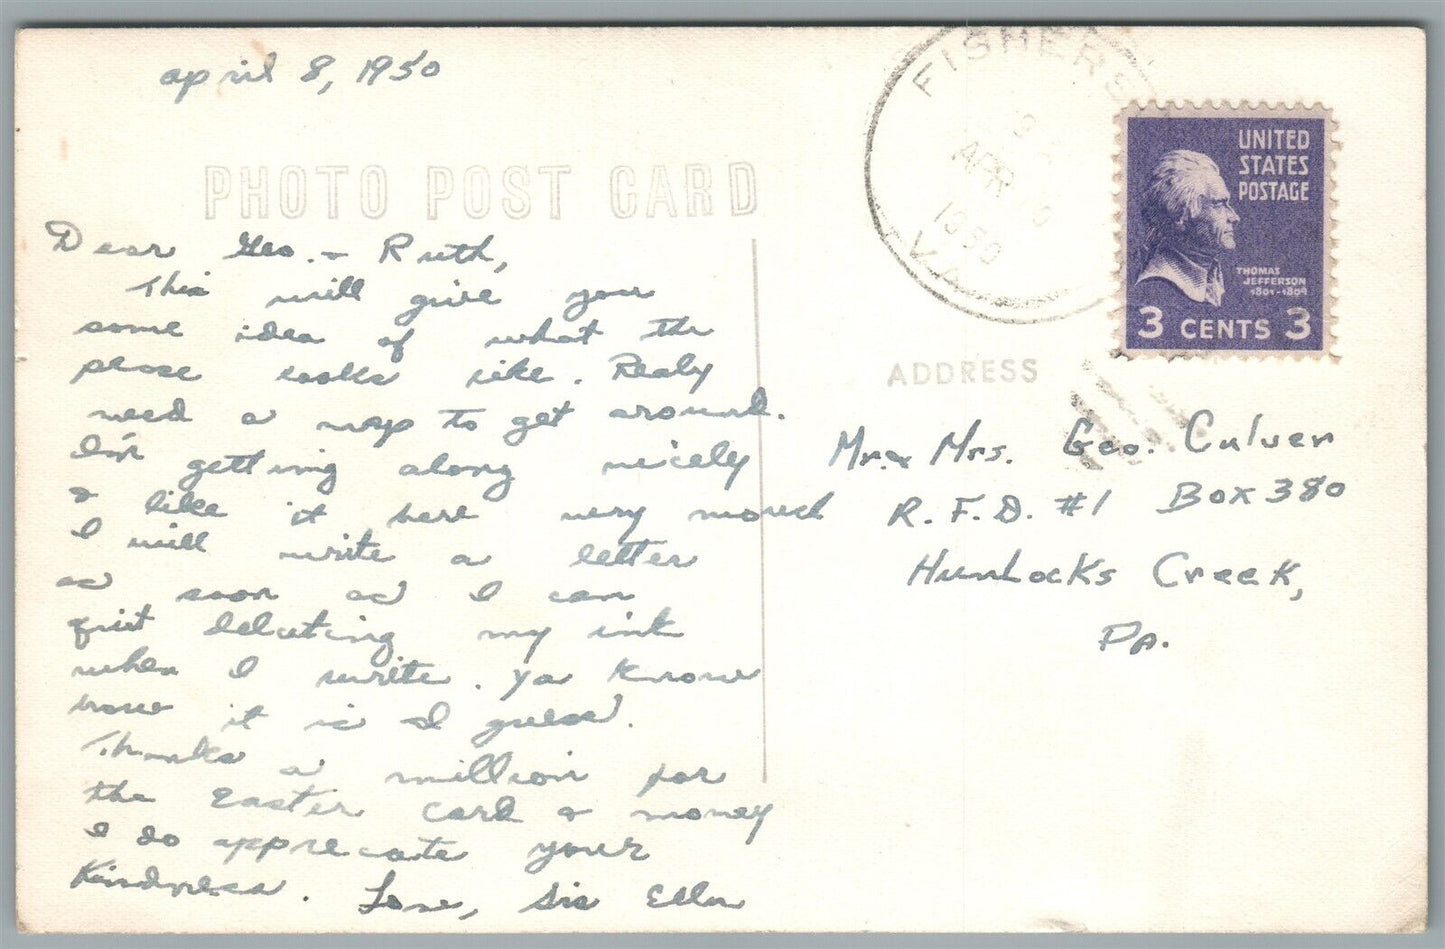 april 8, 1950
PHOTO POST CARD
Dear Geo. & Ruth,
This will give you
some idea of what the
place looks like. Realy
need a map to get around.
I'm getting along nicely
& like it here very much
I will write a letter
as soon as I can
quit deluting my ink
when I write. Ya know
how it is I guess.
Thanks a million for
the Easter card & money
I do apprecate your
Kindness. Love, Sis Ella
FISHERS
APR 10
1950
VA.
UNITED
STATES
POSTAGE
THOMAS
JEFFERSON
1801-1809
3 CENTS 3
ADDRESS
Mr. & Mrs. Geo. Culver
R. F. D. #1 Box 380
Hunlocks Creek,
Pa.